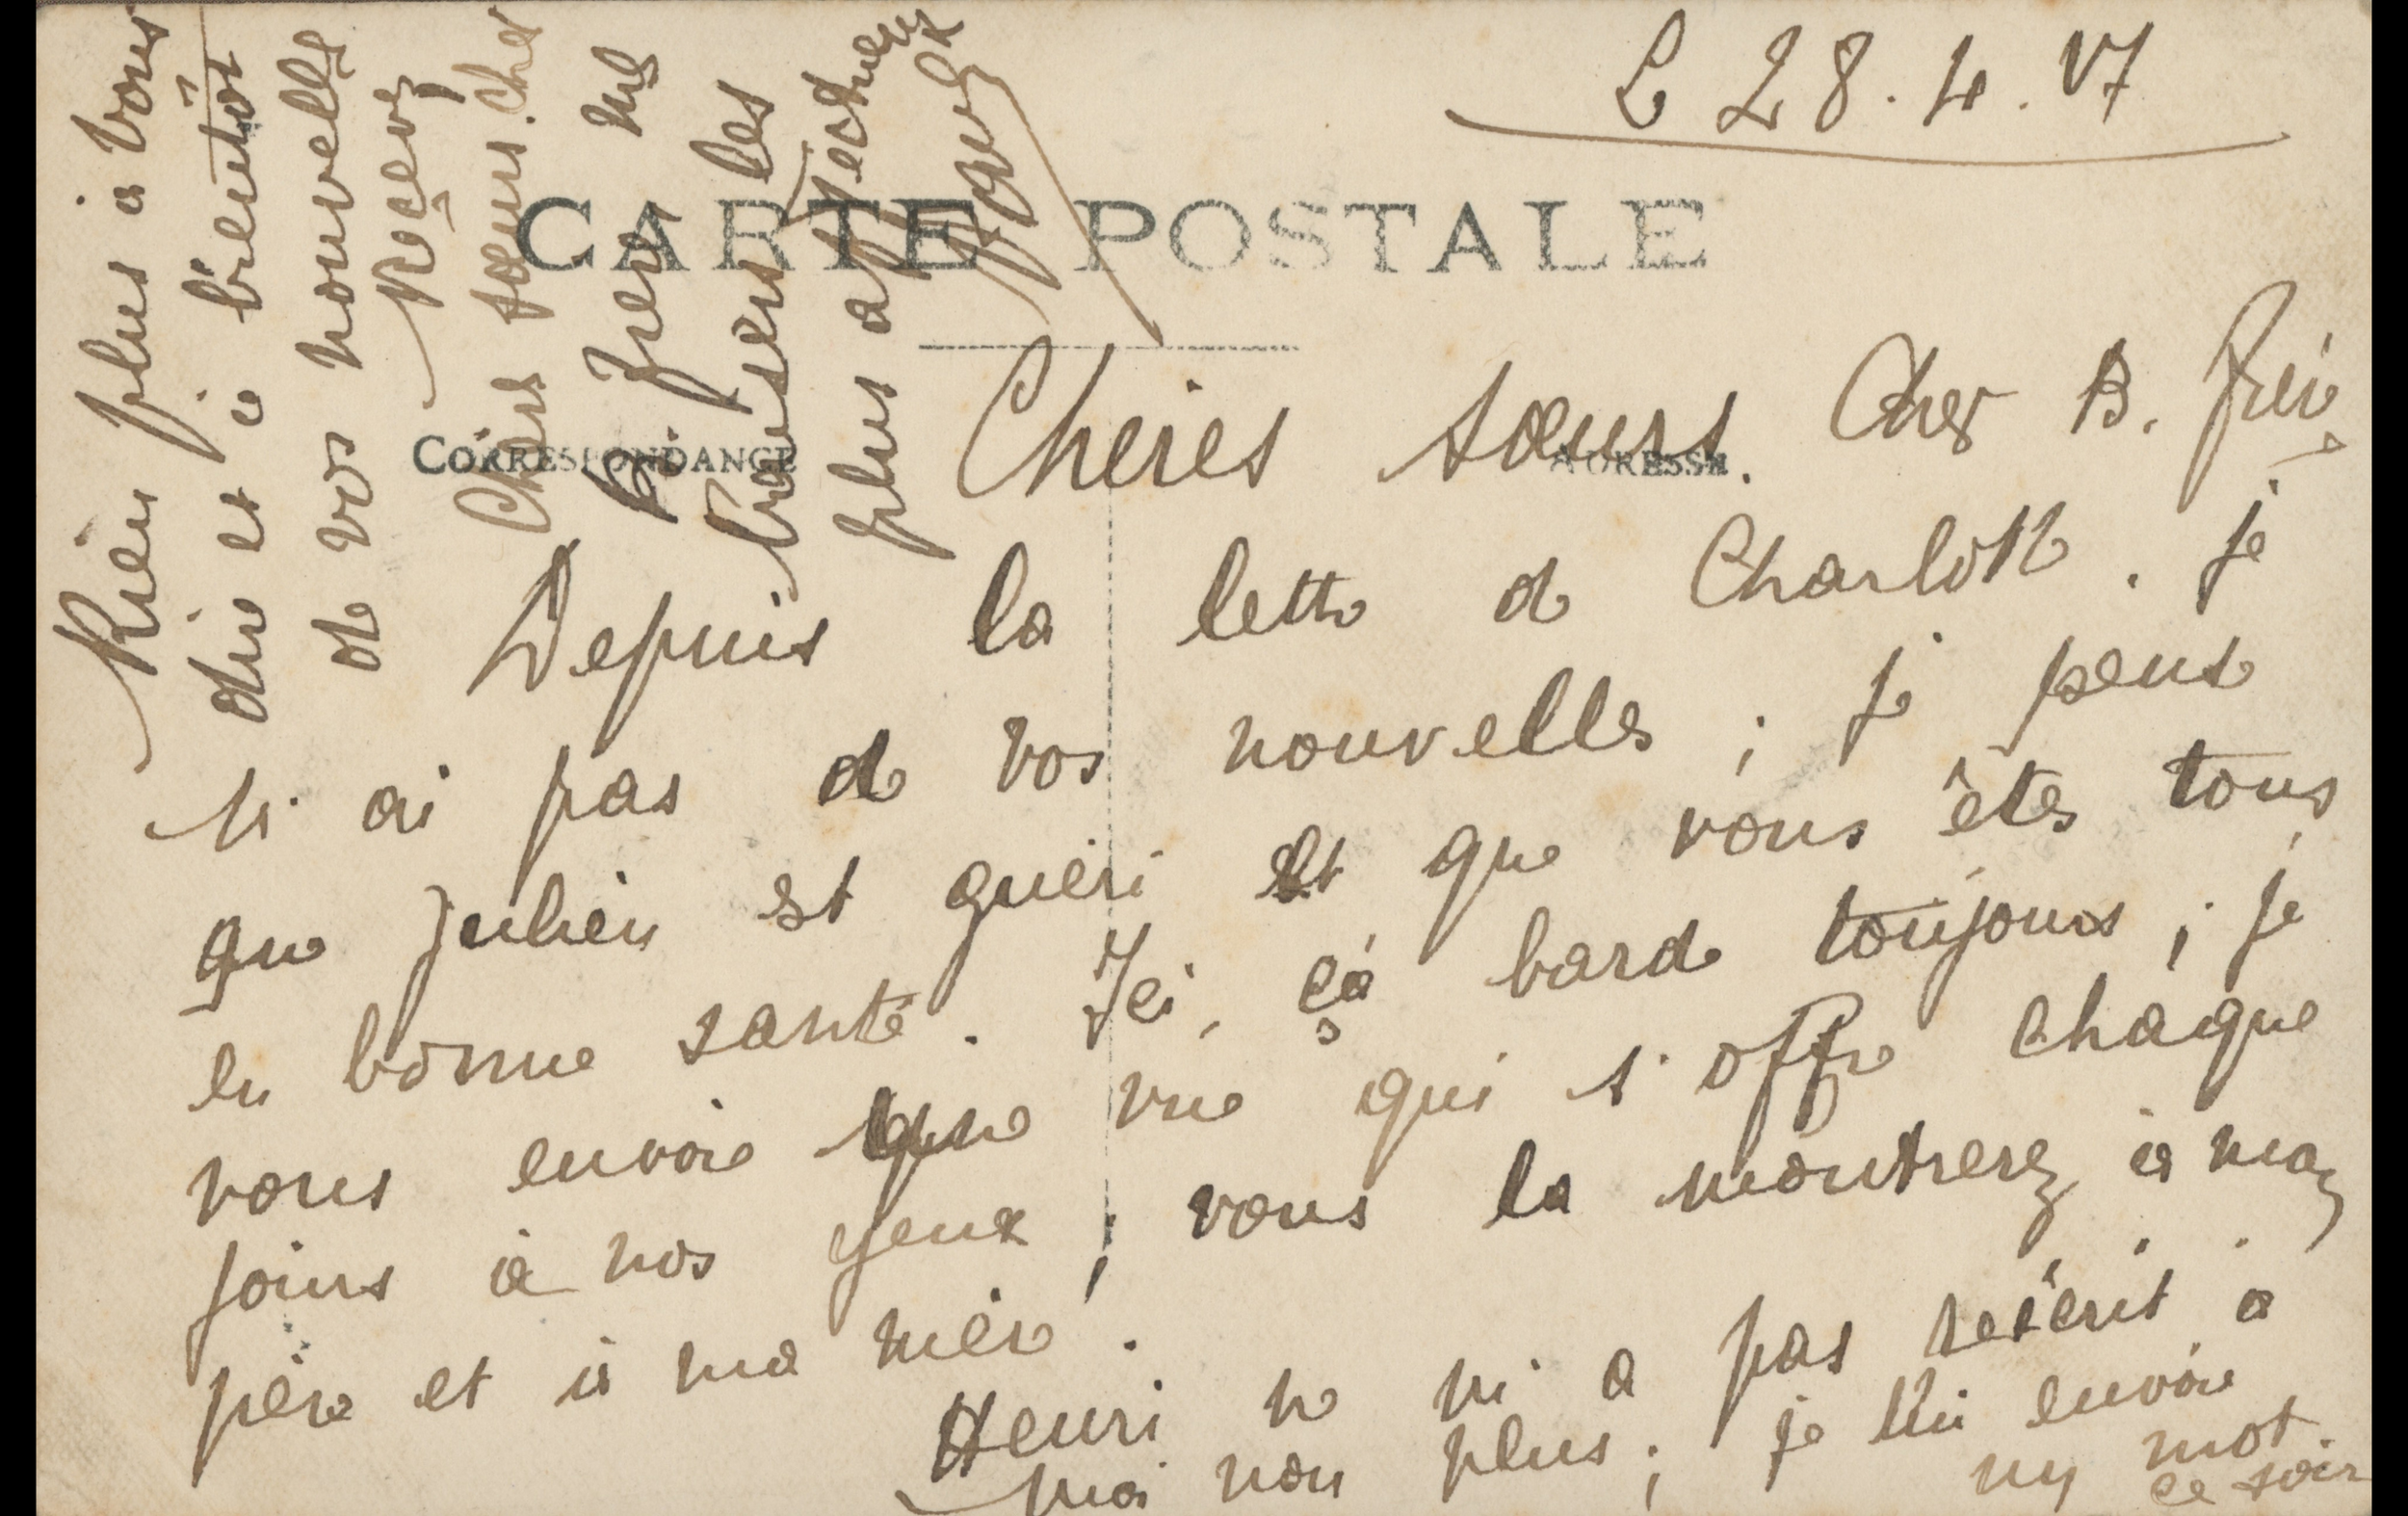 L 28.4.17
CARTE POSTALE
CORRESPONDANCE
ADRESSE
Chères sœurs. Cher B. frère
Depuis la lettre de Charlotte. je
n'ai pas de vos nouvelles ; je pense
que Julien est guéri et que vous êtes tous
en bonne santé. Ici, çà barde toujours ; je
vous envoie une vue qui s'offre chaque
jours à nos yeux ; vous la montrerez à mon
père et à ma mère.
Henri ne m'a pas réécrit, à
moi non plus ; je lui envoie
un mot
ce soir
Rien plus à vous
dire et à bientôt
de vos nouvelles
Recevez
Chères sœurs. cher
B. frère mes
baisers les
plus affectueux